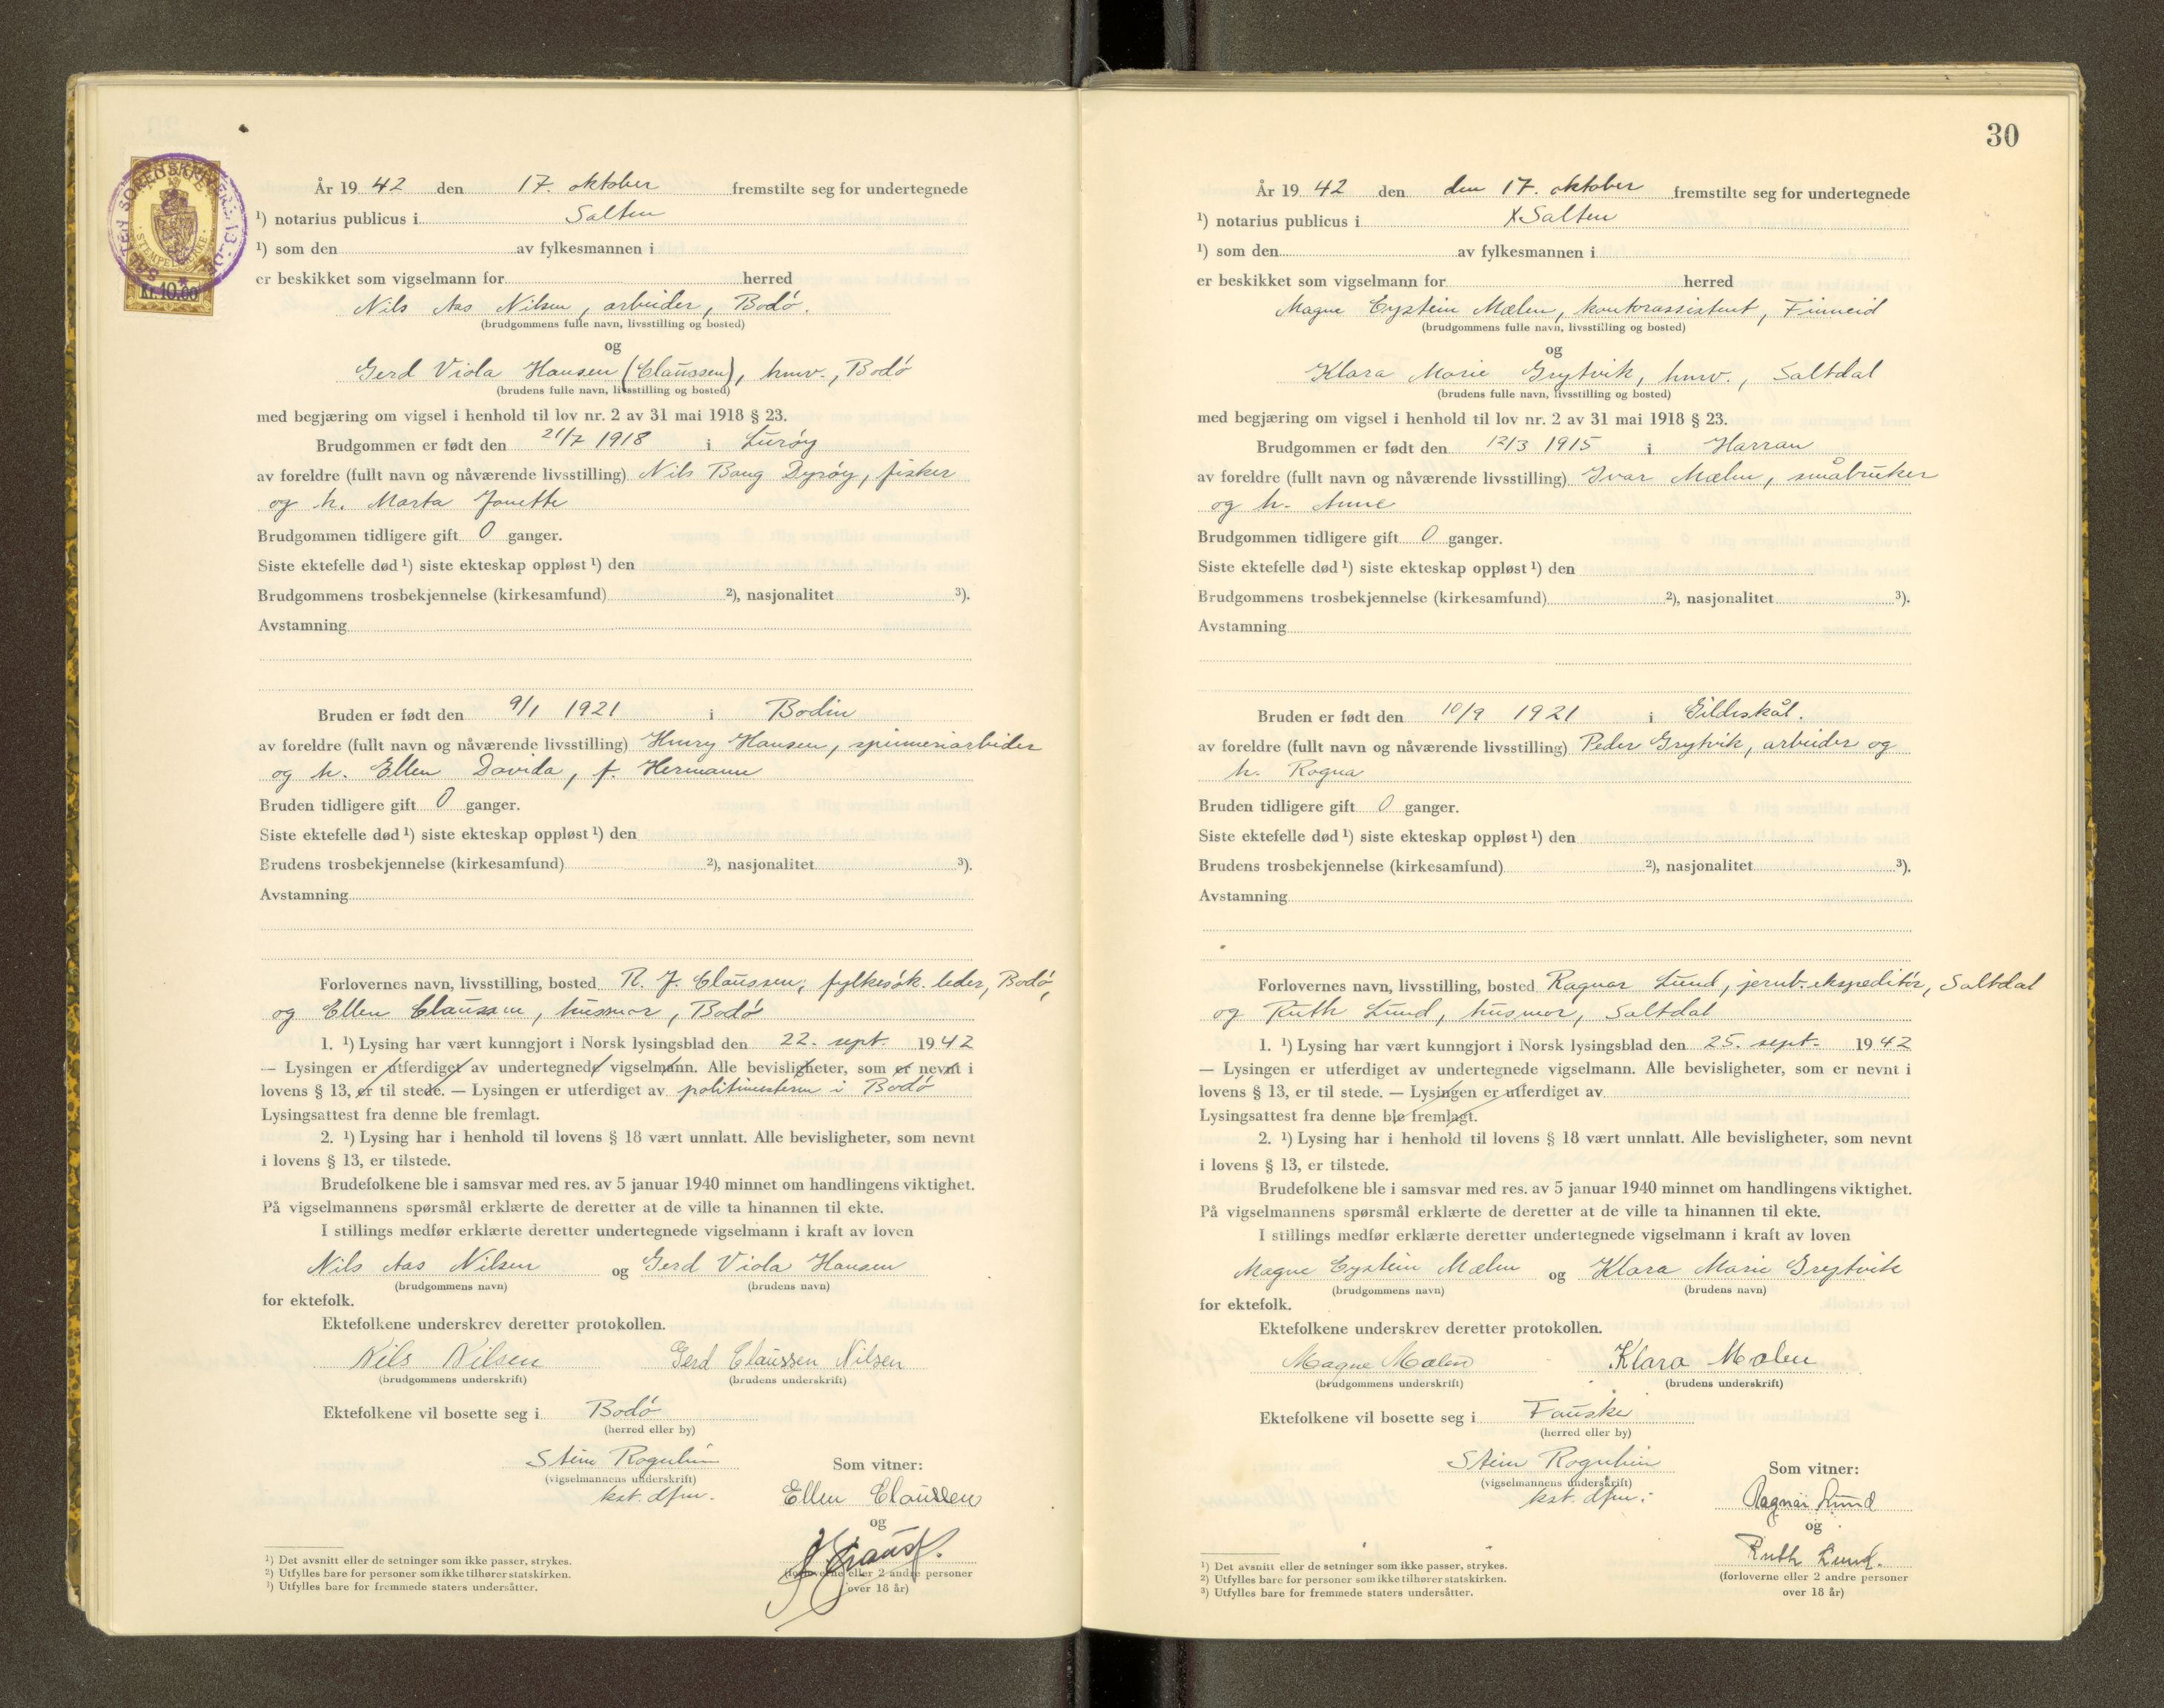 SALTEN SORENSKRIVEREMBEDE
STEMPELMERKE
Kr. 10.00
År 19 42 den 17. oktober fremstilte seg for undertegnede
¹) notarius publicus i Salten
¹) som den av fylkesmannen i
er beskikket som vigselmann for herred
Nils Aas Nilsen, arbeider, Bodø.
(brudgommens fulle navn, livsstilling og bosted)
og
Gerd Viola Hansen (Claussen), hmv., Bodø
(brudens fulle navn, livsstilling og bosted)
med begjæring om vigsel i henhold til lov nr. 2 av 31 mai 1918 § 23.
Brudgommen er født den 21/7 1918 i Lurøy
av foreldre (fullt navn og nåværende livsstilling) Nils Bang Dyrøy, fisker
og h. Marta Jonette
Brudgommen tidligere gift 0 ganger.
Siste ektefelle død ¹) siste ekteskap oppløst ¹) den
Brudgommens trosbekjennelse (kirkesamfund) ²), nasjonalitet ³).
Avstamning
Bruden er født den 9/1 1921 i Bodin
av foreldre (fullt navn og nåværende livsstilling) Henry Hansen, spinneriarbeider
og h. Ellen Davida, f. Hermann
Bruden tidligere gift 0 ganger.
Siste ektefelle død ¹) siste ekteskap oppløst ¹) den
Brudens trosbekjennelse (kirkesamfund) ²), nasjonalitet ³).
Avstamning
Forlovernes navn, livsstilling, bosted R. J. Claussen, fylkesøk. leder, Bodø,
og Ellen Claussen, husmor, Bodø
1. ¹) Lysing har vært kunngjort i Norsk lysingsblad den 22. sept. 1942
— Lysingen er utferdiget av undertegnede vigselmann. Alle bevisligheter, som er nevnt i
lovens § 13, er til stede. — Lysingen er utferdiget av politimesteren i Bodø
Lysingsattest fra denne ble fremlagt.
2. ¹) Lysing har i henhold til lovens § 18 vært unnlatt. Alle bevisligheter, som nevnt
i lovens § 13, er tilstede.
Brudefolkene ble i samsvar med res. av 5 januar 1940 minnet om handlingens viktighet.
På vigselmannens spørsmål erklærte de deretter at de ville ta hinannen til ekte.
I stillings medfør erklærte deretter undertegnede vigselmann i kraft av loven
Nils Aas Nilsen og Gerd Viola Hansen
(brudgommens navn) (brudens navn)
for ektefolk.
Ektefolkene underskrev deretter protokollen.
Nils Nilsen Gerd Claussen Nilsen
(brudgommens underskrift) (brudens underskrift)
Ektefolkene vil bosette seg i Bodø
(herred eller by)
Stein Rognlien
(vigselmannens underskrift)
kst. dfm.
Som vitner:
Ellen Claussen
og
(forloverne eller 2 andre personer
over 18 år)
¹) Det avsnitt eller de setninger som ikke passer, strykes.
²) Utfylles bare for personer som ikke tilhører statskirken.
³) Utfylles bare for fremmede staters undersåtter.
30
År 19 42 den den 17. oktober fremstilte seg for undertegnede
¹) notarius publicus i Salten
¹) som den av fylkesmannen i
er beskikket som vigselmann for herred
Magne Eystein Mælen, kontorassistent, Finneid
(brudgommens fulle navn, livsstilling og bosted)
og
Klara Marie Grytvik, hmv., Saltdal
(brudens fulle navn, livsstilling og bosted)
med begjæring om vigsel i henhold til lov nr. 2 av 31 mai 1918 § 23.
Brudgommen er født den 12/3 1915 i Harran
av foreldre (fullt navn og nåværende livsstilling) Ivar Mælen, småbruker
og h. Anne
Brudgommen tidligere gift 0 ganger.
Siste ektefelle død ¹) siste ekteskap oppløst ¹) den
Brudgommens trosbekjennelse (kirkesamfund) ²), nasjonalitet ³).
Avstamning
Bruden er født den 10/9 1921 i Gildeskål.
av foreldre (fullt navn og nåværende livsstilling) Peder Grytvik, arbeider og
h. Ragna
Bruden tidligere gift 0 ganger.
Siste ektefelle død ¹) siste ekteskap oppløst ¹) den
Brudens trosbekjennelse (kirkesamfund) ²), nasjonalitet ³).
Avstamning
Forlovernes navn, livsstilling, bosted Ragnar Lund, jernb.ekspeditør, Saltdal
og Ruth Lund, husmor, Saltdal
1. ¹) Lysing har vært kunngjort i Norsk lysingsblad den 25. sept. 1942
— Lysingen er utferdiget av undertegnede vigselmann. Alle bevisligheter, som er nevnt i
lovens § 13, er til stede. — Lysingen er utferdiget av
Lysingsattest fra denne ble fremlagt.
2. ¹) Lysing har i henhold til lovens § 18 vært unnlatt. Alle bevisligheter, som nevnt
i lovens § 13, er tilstede.
Brudefolkene ble i samsvar med res. av 5 januar 1940 minnet om handlingens viktighet.
På vigselmannens spørsmål erklærte de deretter at de ville ta hinannen til ekte.
I stillings medfør erklærte deretter undertegnede vigselmann i kraft av loven
Magne Eystein Mælen og Klara Marie Grytvik
(brudgommens navn) (brudens navn)
for ektefolk.
Ektefolkene underskrev deretter protokollen.
Magne Mælen Klara Mælen
(brudgommens underskrift) (brudens underskrift)
Ektefolkene vil bosette seg i Fauske
(herred eller by)
Stein Rognlien
(vigselmannens underskrift)
kst. dfm.
Som vitner:
Ragnar Lund
og
Ruth Lund.
(forloverne eller 2 andre personer
over 18 år)
¹) Det avsnitt eller de setninger som ikke passer, strykes.
²) Utfylles bare for personer som ikke tilhører statskirken.
³) Utfylles bare for fremmede staters undersåtter.